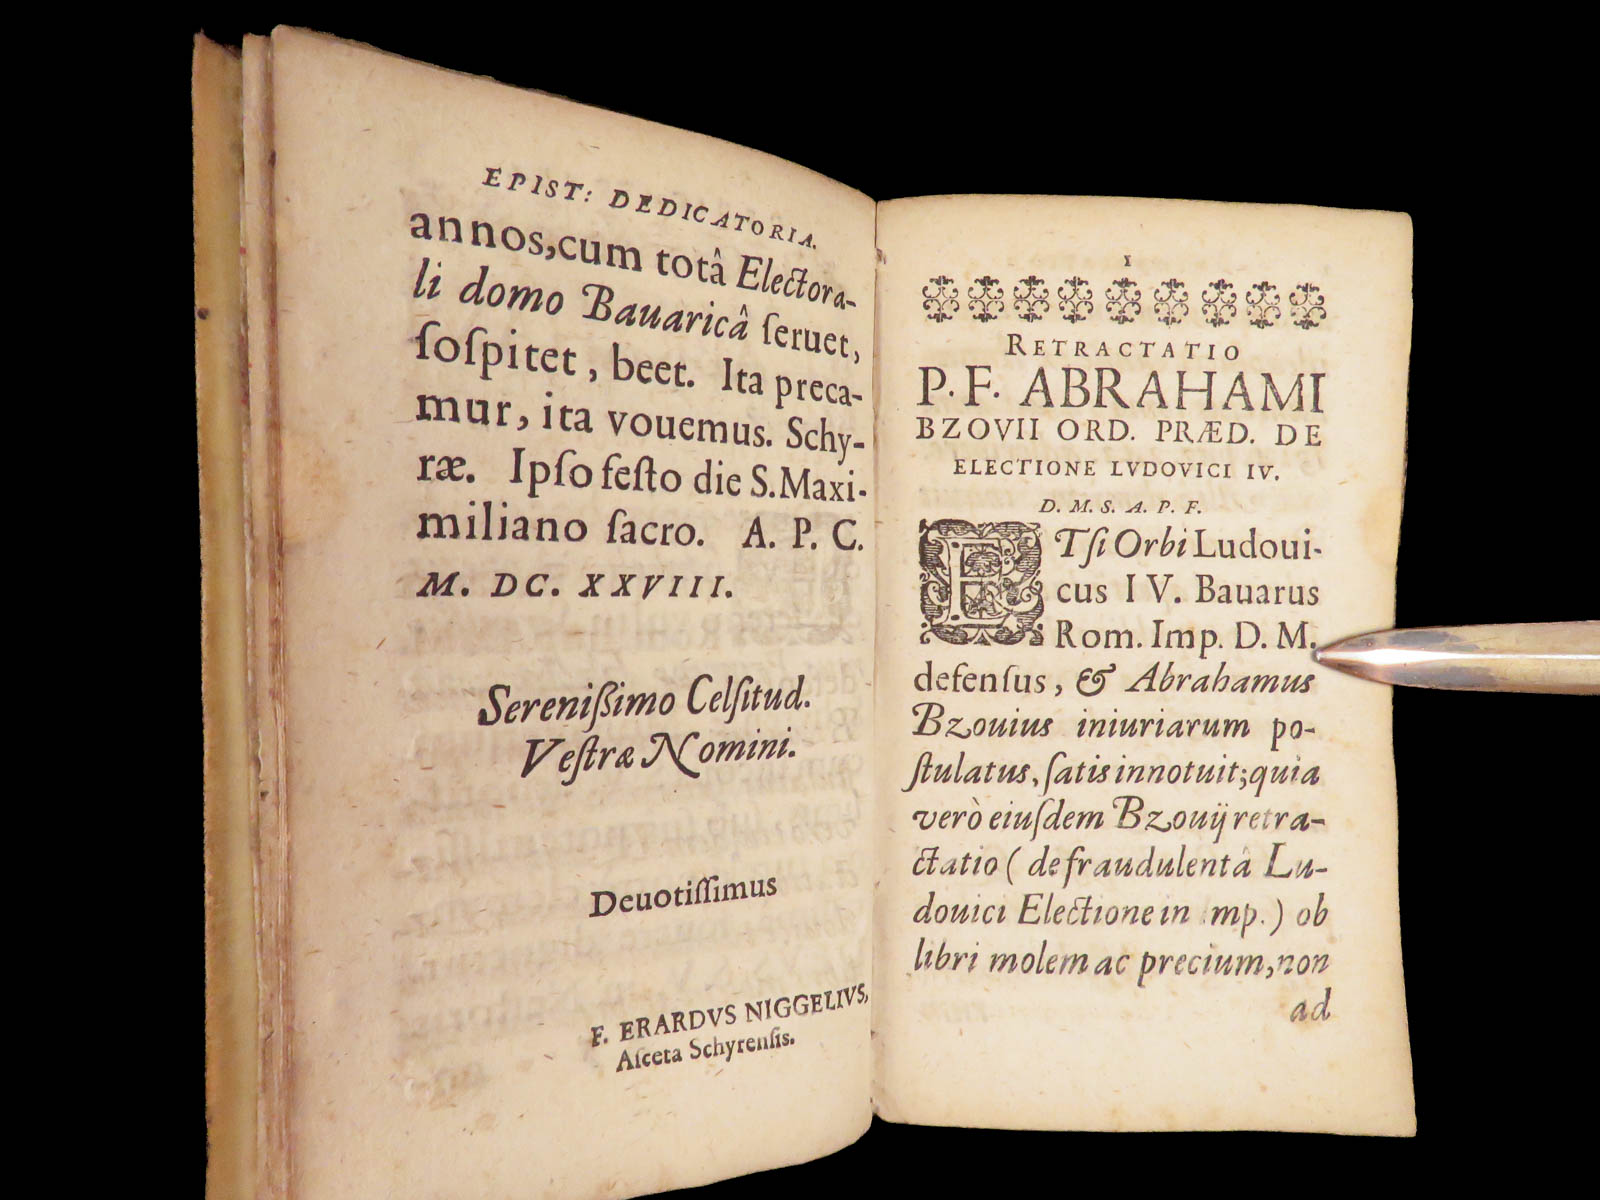 EPIST: DEDICATORIA.
annos, cum totâ Electora-
li domo Bauaricâ ſeruet,
ſoſpitet, beet. Ita preca-
mur, ita vouemus. Schy-
ræ. Ipſo feſto die S. Maxi-
miliano ſacro. A. P. C.
M. DC. XXVIII.
Sereniſſimo Celſitud.
Veſtræ Nomini.
Deuotiſſimus
F. ERARDVS NIGGELIVS,
Aſceta Schyrenſis.
1
RETRACTATIO
P. F. ABRAHAMI
BZOVII ORD. PRÆD. DE
ELECTIONE LVDOVICI IV.
D. M. S. A. P. F.
ETſi Orbi Ludoui-
cus IV. Bauarus
Rom. Imp. D. M.
defenſus, & Abrahamus
Bzouius iniuriarum po-
ſtulatus, ſatis innotuit; quia
verò eiuſdem Bzouij retra-
ctatio (de fraudulentâ Lu-
douici Electione in Imp.) ob
libri molem ac precium, non
ad